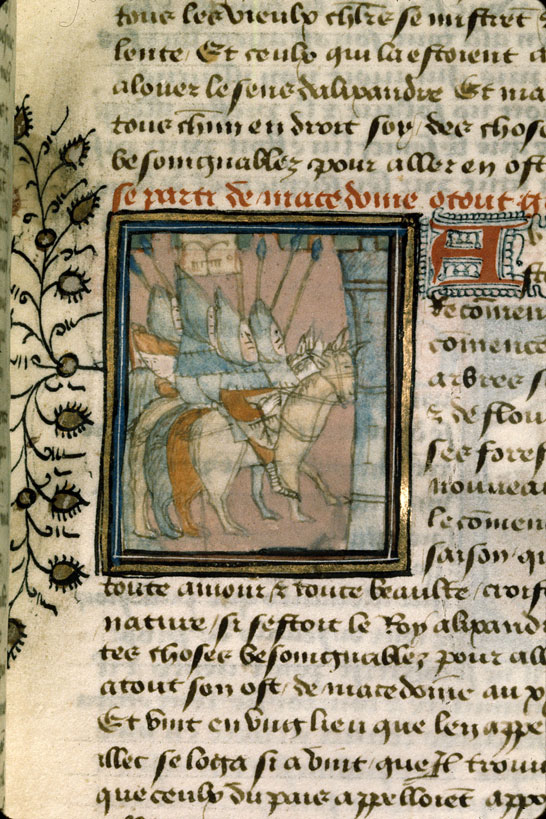 tous les vieulx chlrs se mistret
lente / Et ceulx qui la estoient a
a louer le sens dalixandre Et ma
tous chun en droit soy / des chose
besoingnables pour aller en ost
se parti de macedoine o tout
A
de comen
comence
arbres s
& de flou
ses fores
nouveau
le comen
saison / qu
toute amour & toute beaulte / crois
nature / si sestoit le Roy alixand
tes choses besoingnables pour all
atout son ost / de macedoine au p
Et vint en vng lieu que len appe
illec se loga si a vint / que Il trouu
que ceulx du pais appelloiet appo